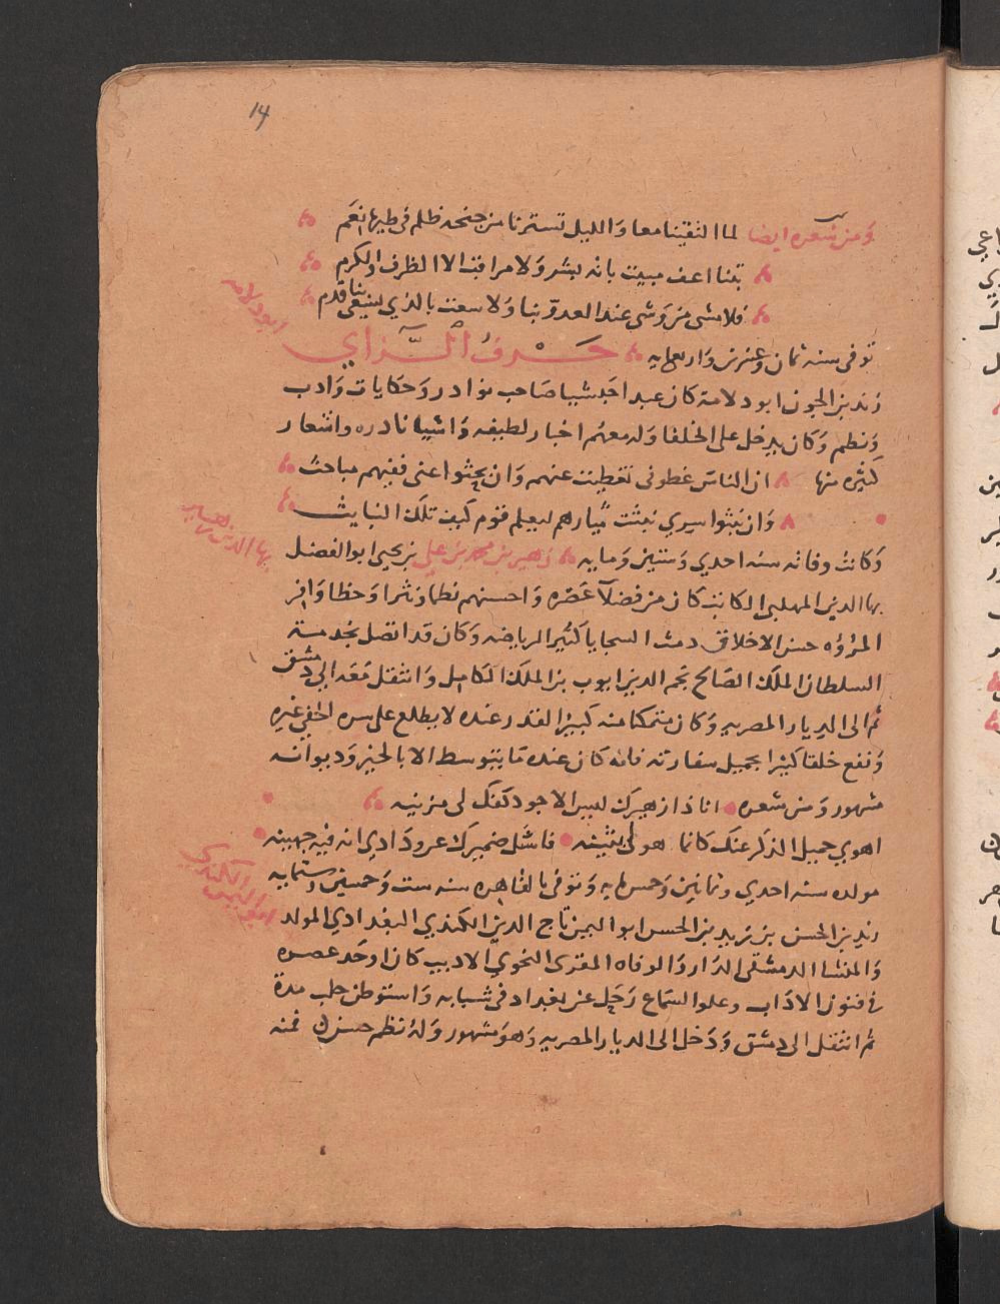 14
ومن شعره ايضا لما التقينا معا والليل تسترنا من جنحه ظلم في طيها نعم
بتنا اعف مبيت بانه بشر ولا مراقب الا الظرف والكرم
فلا مشى من وشى عند العدو بنا ولا سعت بالذي يسعى بنا قدم
ابو دلامه
توفي سنه ثمان وعشرين واربعمايه حرف الزاي
زند بن الجون ابو دلامة كان عبدا حبشيا صاحب نوادر وحكايات وادب
ونظم وكان يدخل على الخلفا وله معهم اخبار لطيفه واشيا نادره واشعار
كثيره منها ان الناس غطوني تغطيت عنهم وان بحثوا عني ففيهم مباحث
وان نبثوا بيري نبثت بيارهم ليعلم قوم كيف تلك النبايث
بها الدين زهير
وكانت وفاته سنه احدي وستين ومايه زهير بن محمد بن علي بن يحيى ابو الفضل
بها الدين المهلبي الكاتب كان من فضلآ عصره واحسنهم نظما ونثرا وخطا وافر
المروه حسن الاخلاق دمث السجايا كثير الرياضه وكان قد اتصل بخدمة
السلطان الملك الصالح نجم الدين ايوب بن الملك الكامل وانتقل معه الى دمشق
ثم الى الديار المصريه وكان متمكنا منه كبير القدر عنده لا يطلع على سره الخفي غيره
ونفع خلقا كثيرا بجميل سفارته فانه كان عنده ما يتوسط الا بالخير وديوانه
مشهور ومن شعره انا ذا زهيرك ليس الا جود كفك لي مزينه
اهوي جميل الذكر عنك كانما هو لي بثينه فاسئل ضميرك عن ودادي انه فيه جهينه
مولده سنه احدي وثمانين وخمسمايه وتوفي بالقاهره سنه ست وخمسين وستمايه
ابو اليمن الكندي
زيد بن الحسن بن زيد بن الحسن ابو اليمن تاج الدين الكندي البغدادي المولد
والمنشا الدمشقي الدار والوفاه المقرى النحوي الاديب كان اوحد عصره
في فنون الاداب وعلو السماع رحل عن بغداد في شبابه واستوطن حلب مدة
ثم انتقل الى دمشق ودخل الى الديار المصريه وهو مشهور وله نظم حسن فمنه